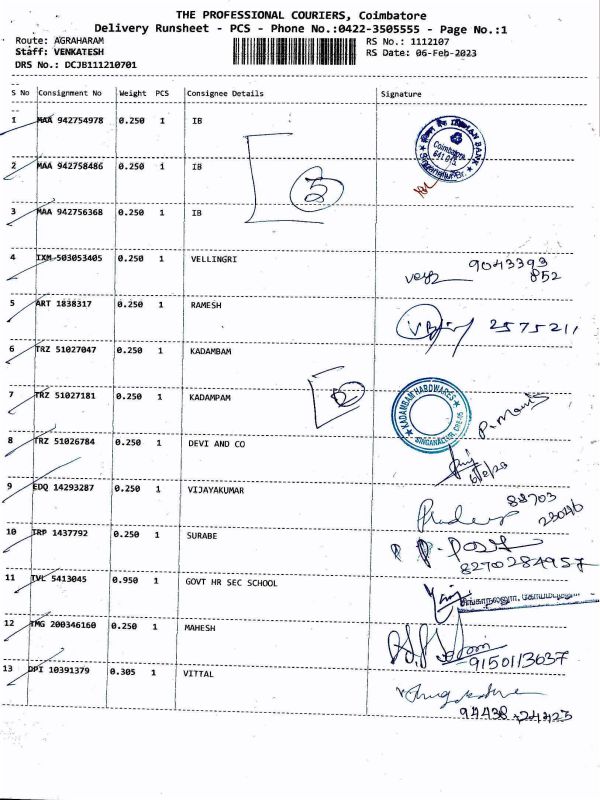 THE PROFESSIONAL COURIERS, Coimbatore
Delivery Runsheet - PCS - Phone No.:0422-3505555 - Page No.:1
Route: AGRAHARAM
RS No.: 1112107
Staff: VENKATESH
RS Date: 06-Feb-2023
DRS No.: DCJB111210701
S No Consignment No Weight PCS Consignee Details Signature
1 MAA 942754978 0.250 1 IB
INDIAN BANK
Coimbatore
641 005
Singanallur Br.
2 MAA 942758486 0.250 1 IB
3
3 MAA 942756368 0.250 1 IB
4 IXM 503053405 0.250 1 VELLINGRI
9043393
852
5 ART 1838317 0.250 1 RAMESH
2575211
6 TRZ 51027047 0.250 1 KADAMBAM
7 TRZ 51027181 0.250 1 KADAMPAM
2
KADAMBAM HARDWARES
8 TRZ 51026784 0.250 1 DEVI AND CO
9 EDQ 14293287 0.250 1 VIJAYAKUMAR
88703
23046
10 TRP 1437792 0.250 1 SURABE
8270284957
11 TVL 5413045 0.950 1 GOVT HR SEC SCHOOL
12 TMG 200346160 0.250 1 MAHESH
9150113637
13 DPI 10391379 0.305 1 VITTAL
94438 24323